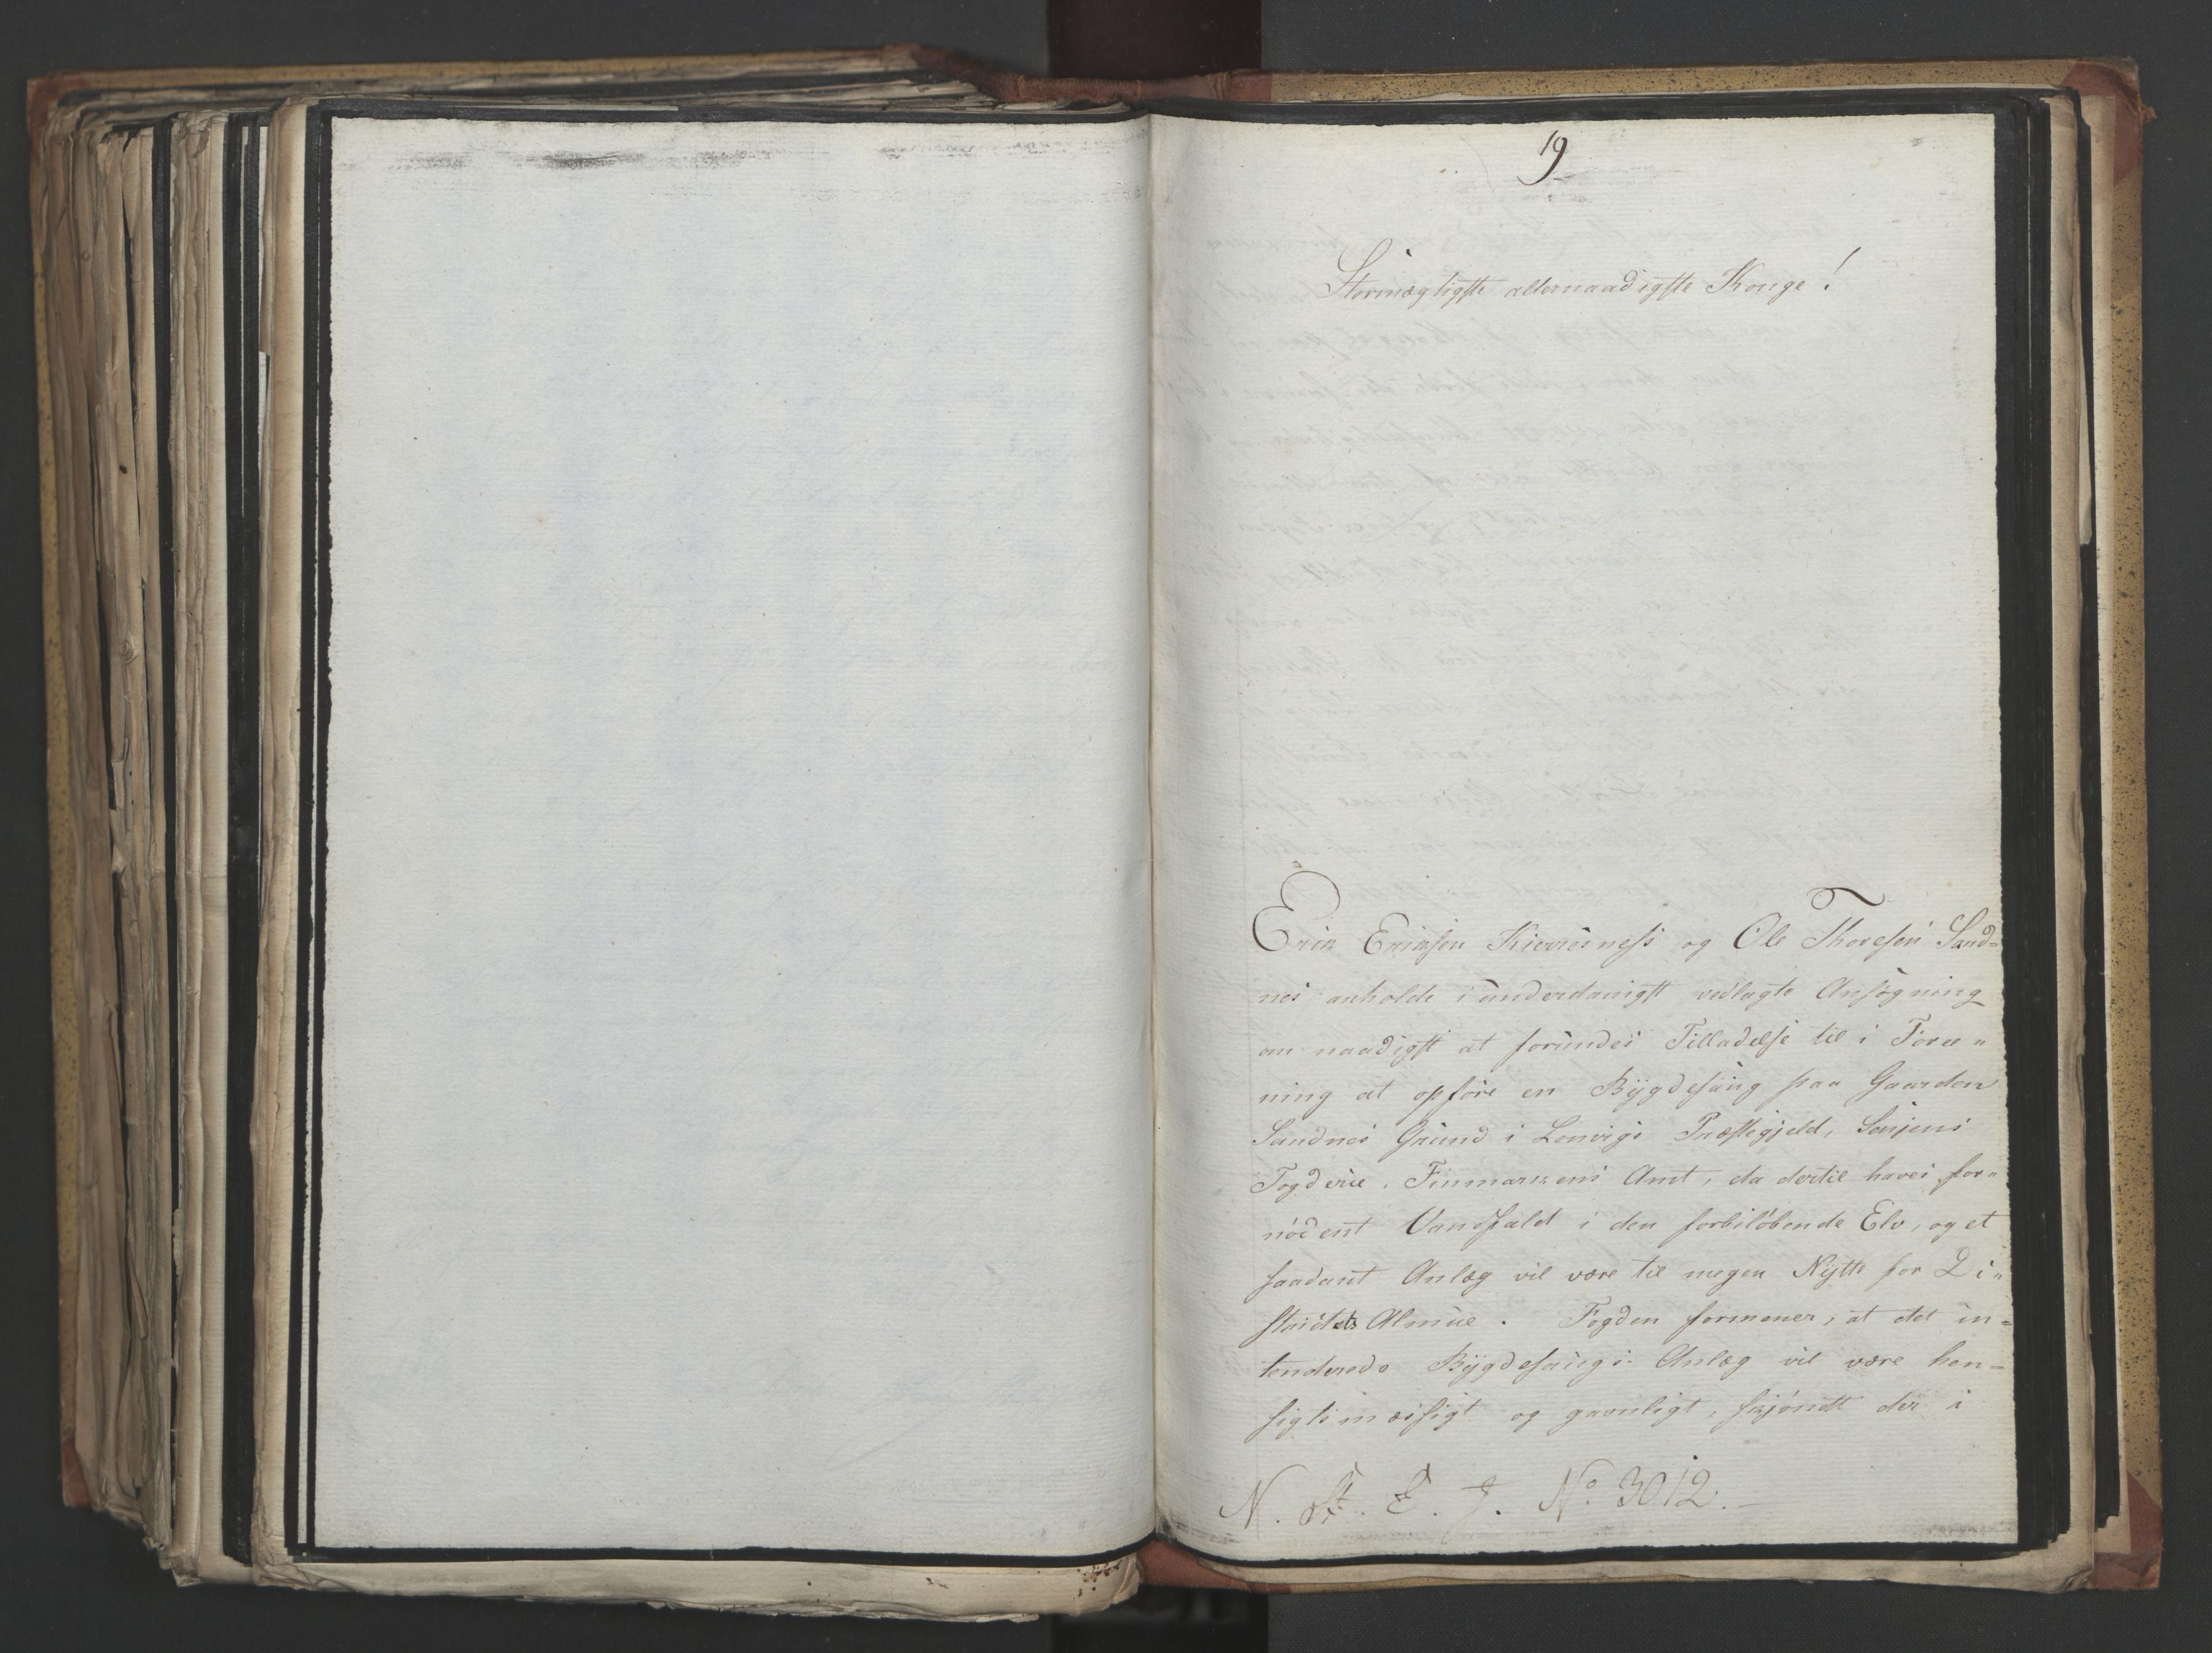 19
Stormægtigste allernaadigste Konge!
Erik Eriksen Kiævresness og Ole Thoresen Sand=
nes anholde i underdanigst vedlagte Ansøgning
om naadigst at forundes Tilladelse til i Foree„
ning at opføre en Bygdesaug paa Gaarden
Sandnes Grund i Lenvigs Præstegjeld, Senjens
Fogderie, Finmarkens Amt, da dertil haves for„
nødent Vandfald i den forbiløbende Elv, og et
saadant Anlæg vil være til megen Nytte for Di„
strictets Almue. Fogden formener, at det in=
tenderede Bygdesaugs Anlæg vil være hen=
sigtsmæssigt og gavnligt, skjøndt der i
N. St. E. J. No. 3012.